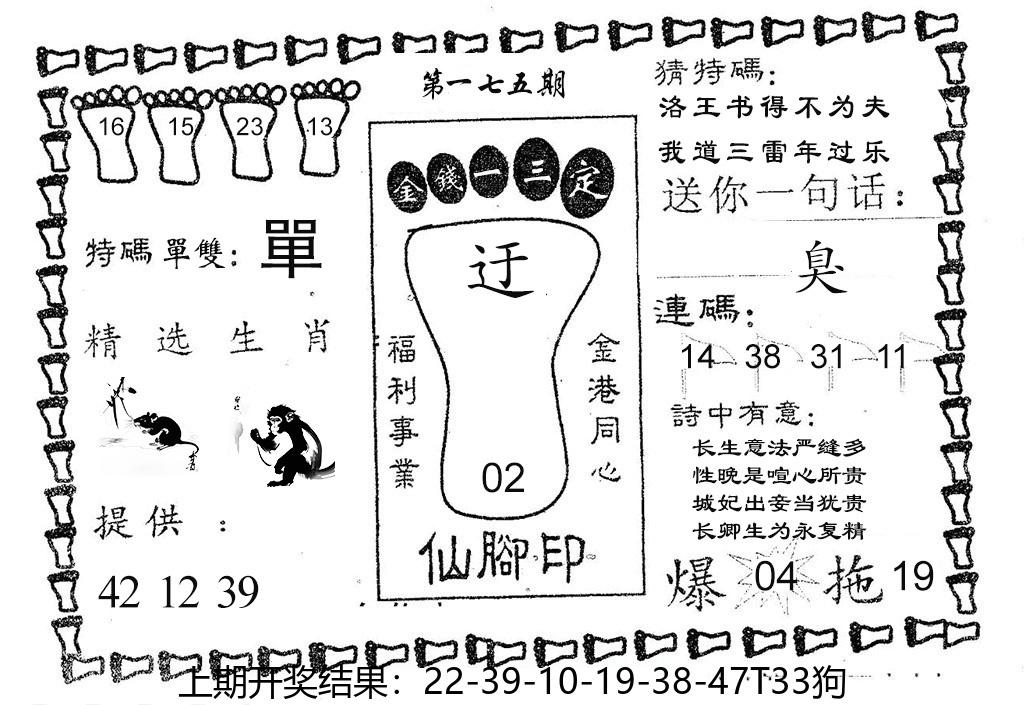 第一七五期
16 15 23 13
特碼單雙：單
精选生肖
提供：
42 12 39
金錢一三定
迂
福利事業
金港同心
02
仙腳印
猜特碼：
洛王书得不为夫
我道三雷年过乐
送你一句话：
臭
連碼：
14 38 31 11
詩中有意：
长生意法严缝多
性晚是喧心所贵
城妃出妾当犹贵
长卿生为永复精
爆 04 拖 19
上期开奖结果：22-39-10-19-38-47T33狗